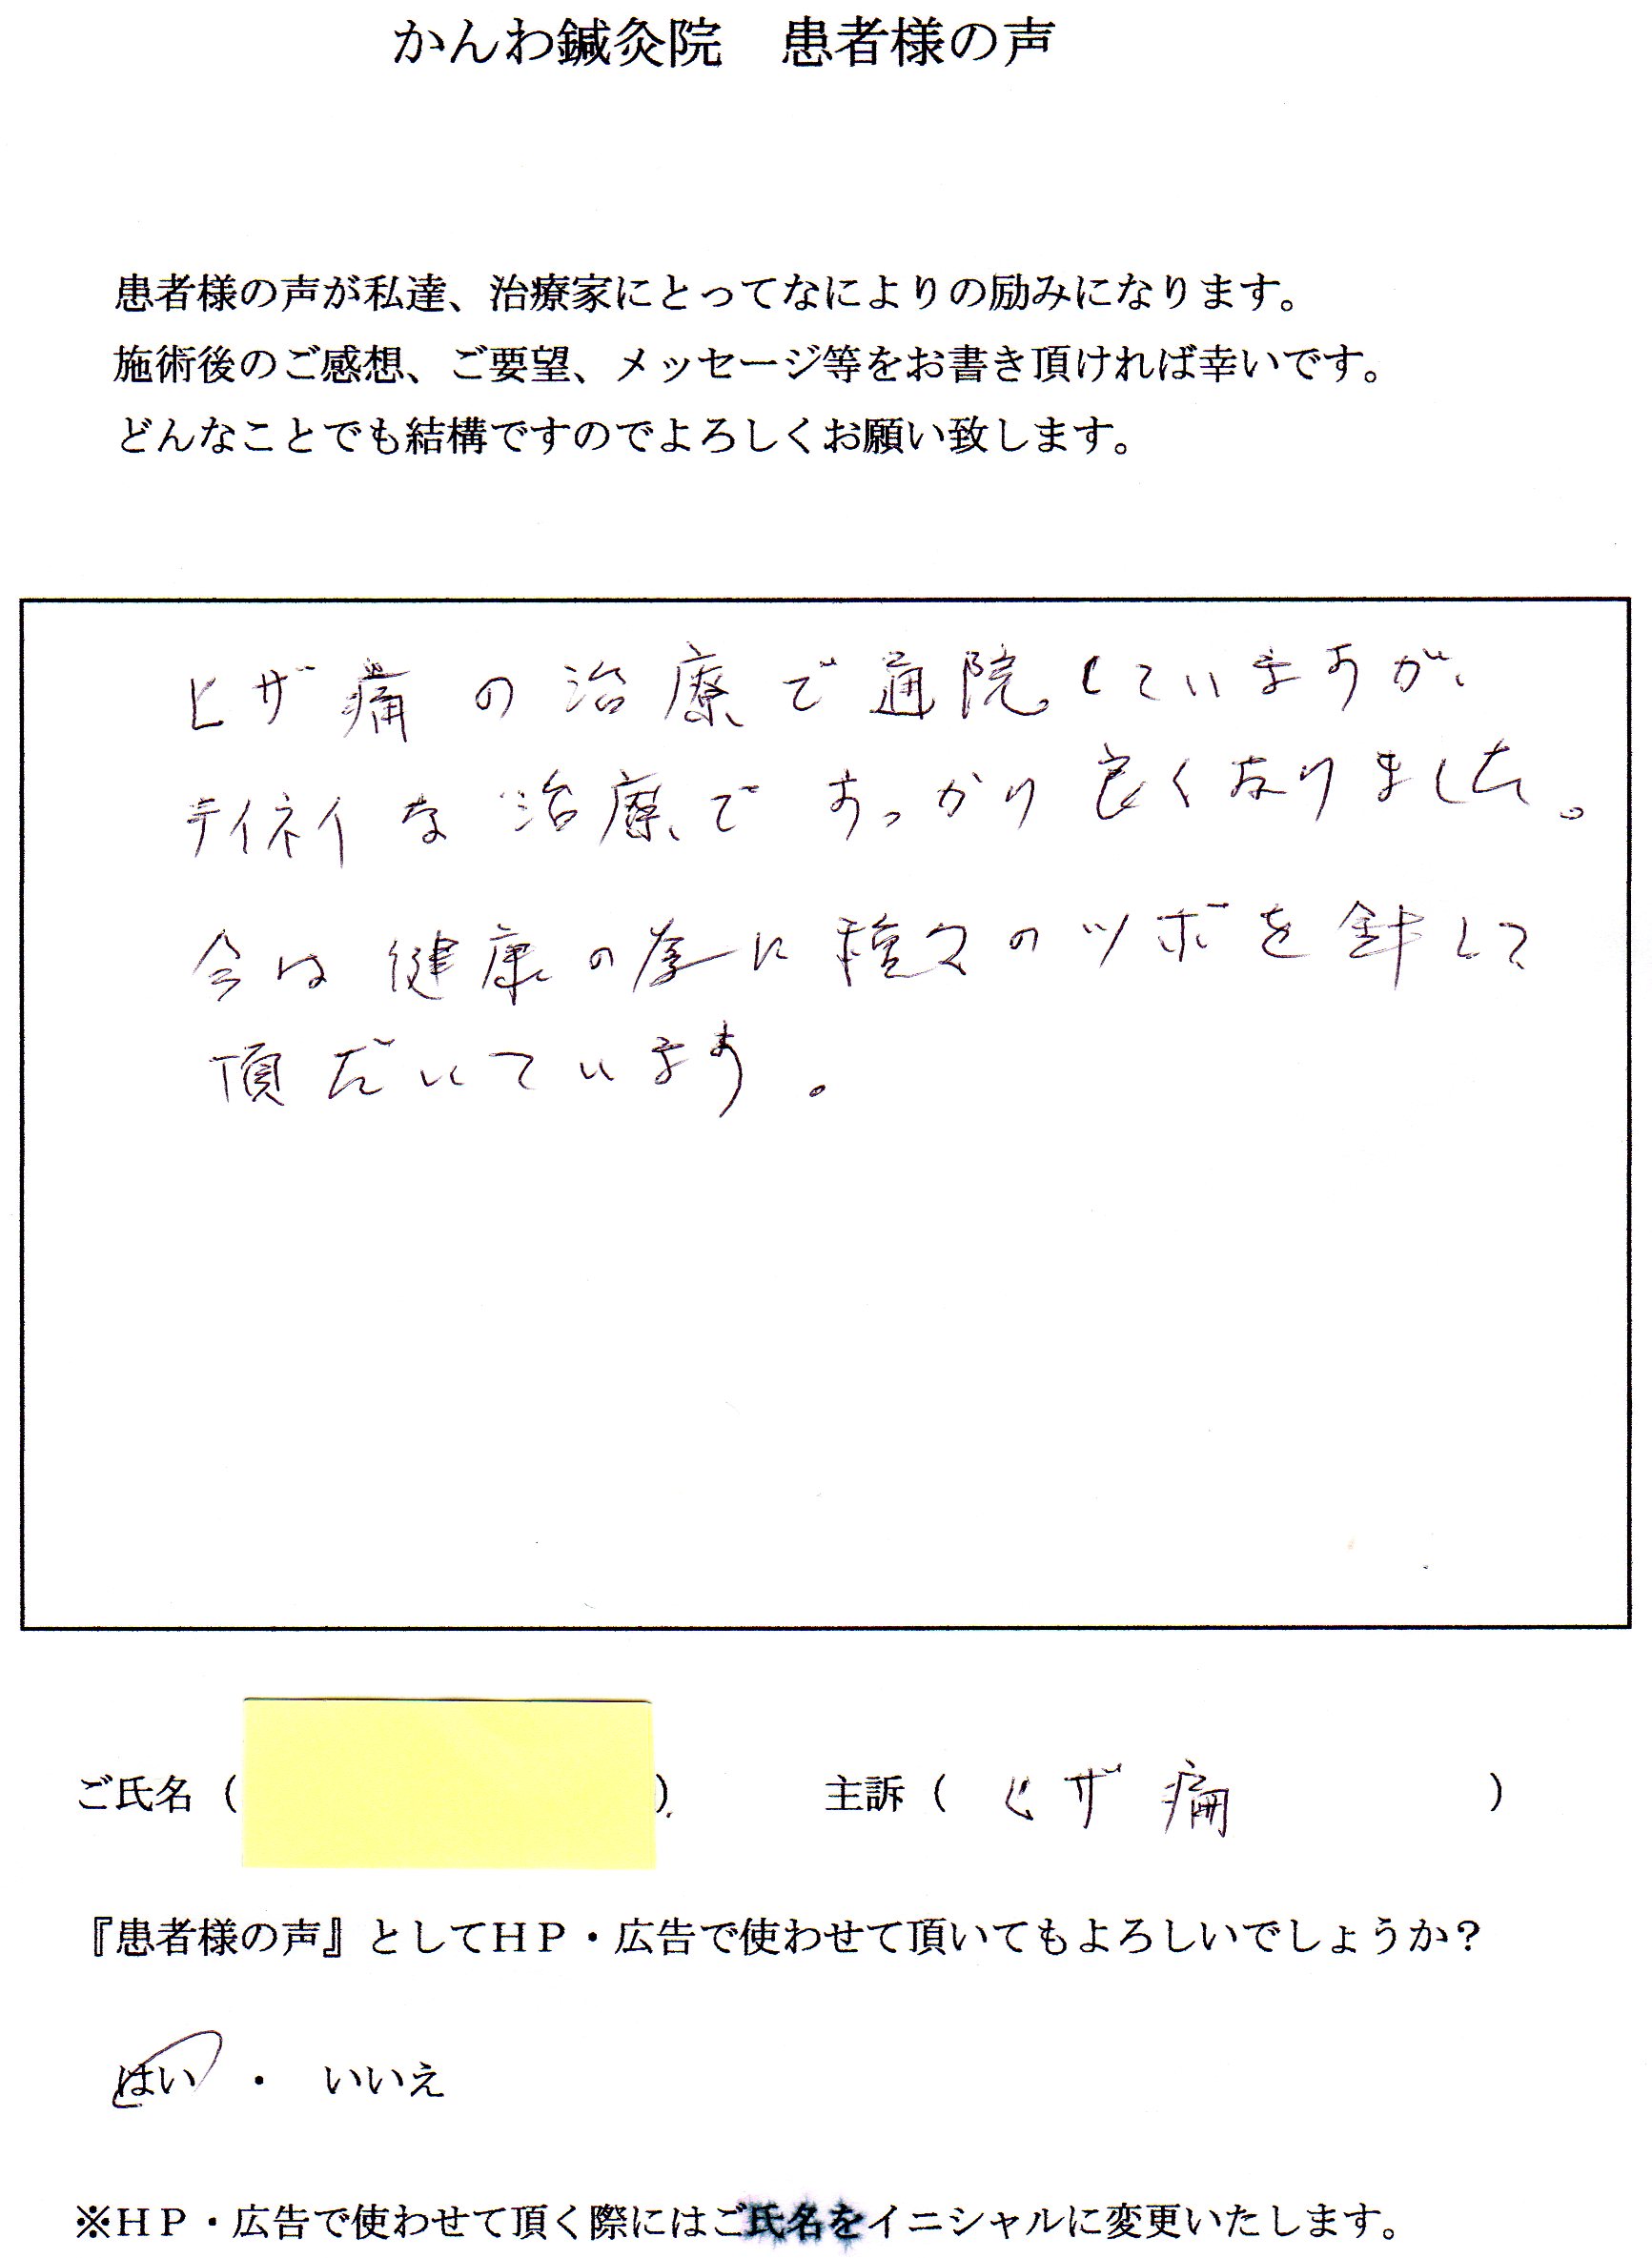 かんわ鍼灸院　患者様の声
患者様の声が私達、治療家にとってなによりの励みになります。
施術後のご感想、ご要望、メッセージ等をお書き頂ければ幸いです。
どんなことでも結構ですのでよろしくお願い致します。
ヒザ痛の治療で通院していますが、
テイネイな治療ですっかり良くなりました。
今は健康の為に種々のツボを針して
頂だいています。
ご氏名（　　　）　主訴（ ヒザ痛 ）
『患者様の声』としてＨＰ・広告で使わせて頂いてもよろしいでしょうか？
はい　・　いいえ
※ＨＰ・広告で使わせて頂く際にはご氏名をイニシャルに変更いたします。